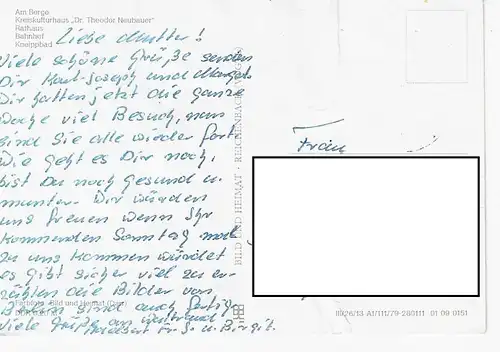 Am Berge
Kreiskulturhaus „Dr. Theodor Neubauer"
Rathaus
Bahnhof
Kneippbad
Liebe Mutter!
Viele schöne Grüße senden
Dir Karl-Joseph und
Wir hatten jetzt die ganze
Woche viel Besuch, nun
sind Sie alle wieder fort.
Wie geht es Dir noch,
bist Du noch gesund u.
munter. Wir würden
uns freuen wenn Ihr
kommenden Sonntag mal
zu uns kommen würdet
es gibt sicher viel zu er-
zählen die Bilder von
sind auch fertig
viele Grüße an
u. Birgit.
Frau
BILD UND HEIMAT · REICHENBACH
Bild und Heimat
III/26/13 A1/111/79-280111 01 09 0151